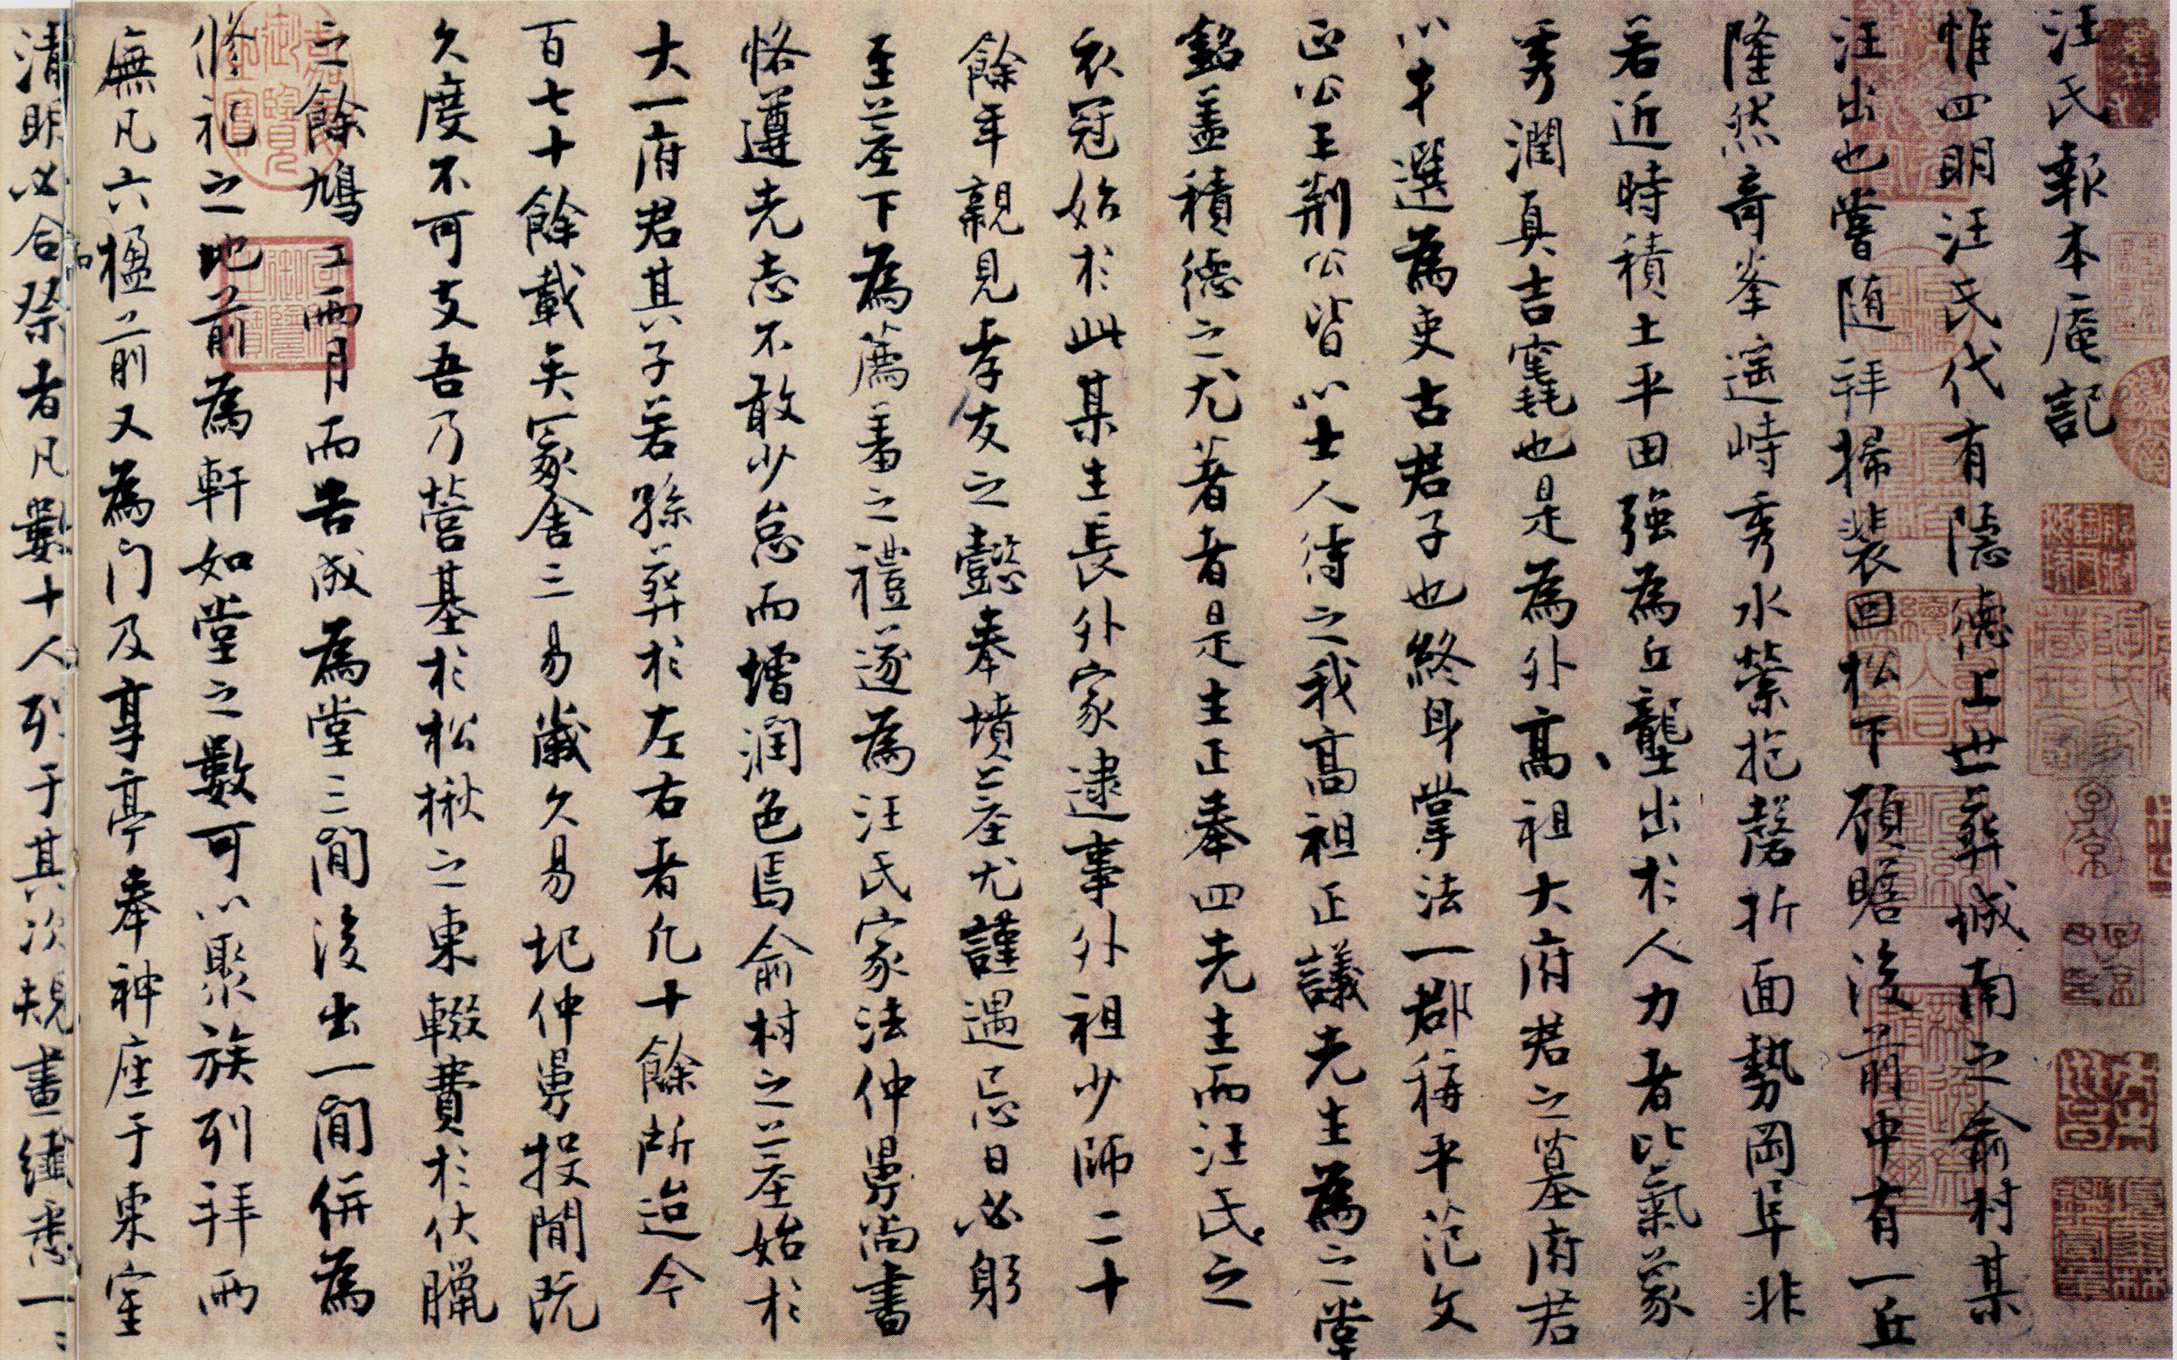 汪氏報本庵記
惟四明汪氏代有隱德上世葬城南之俞村某
汪出也嘗随拜掃裴回松下顧瞻後前中有一丘
隆然奇峯遥峙秀水縈抱磬折面勢岡阜非
若近時積土平田強為丘壟出於人力者比氣象
秀潤真吉竁也是為外高祖大府君之墓府君
以才選為吏古君子也終身掌法一郡稱平范文
正公王荆公皆以士人待之我高祖正議先生為之堂
銘盖積德之尤著者是生正奉四先生而汪氏之
衣冠始於此某生長外家逮事外祖少師二十
餘年親見孝友之懿奉墳墓尤謹遇忌日必躬
至墓下為薦羞之禮遂為汪氏家法仲舅尚書
恪遵先志不敢少怠而增潤色焉俞村之墓始於
大一府君其子若孫葬於左右者凡十餘所迨今
百七十餘載矣冢舍三易歲久易圮仲舅投閒既
久度不可支吾乃營基於松楸之東輟費於伏臘
之餘鳩工兩月而告成為堂三間後出一間併為
修祀之地前為軒如堂之數可以聚族列拜兩
廡凡六楹前又為门及享亭奉神座于東室
清明必合祭者凡數十人列于其次規畫纎悉一